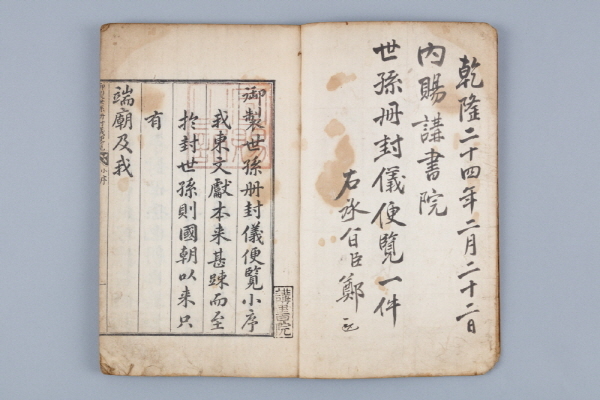 乾隆二十四年二月二十二日
內賜講書院
世孫冊封儀便覽一件
右承旨臣鄭
御製世孫冊封儀便覽小序
我東文獻本来甚踈而至
扵封世孫則國朝以来只
有
端廟及我
講書院